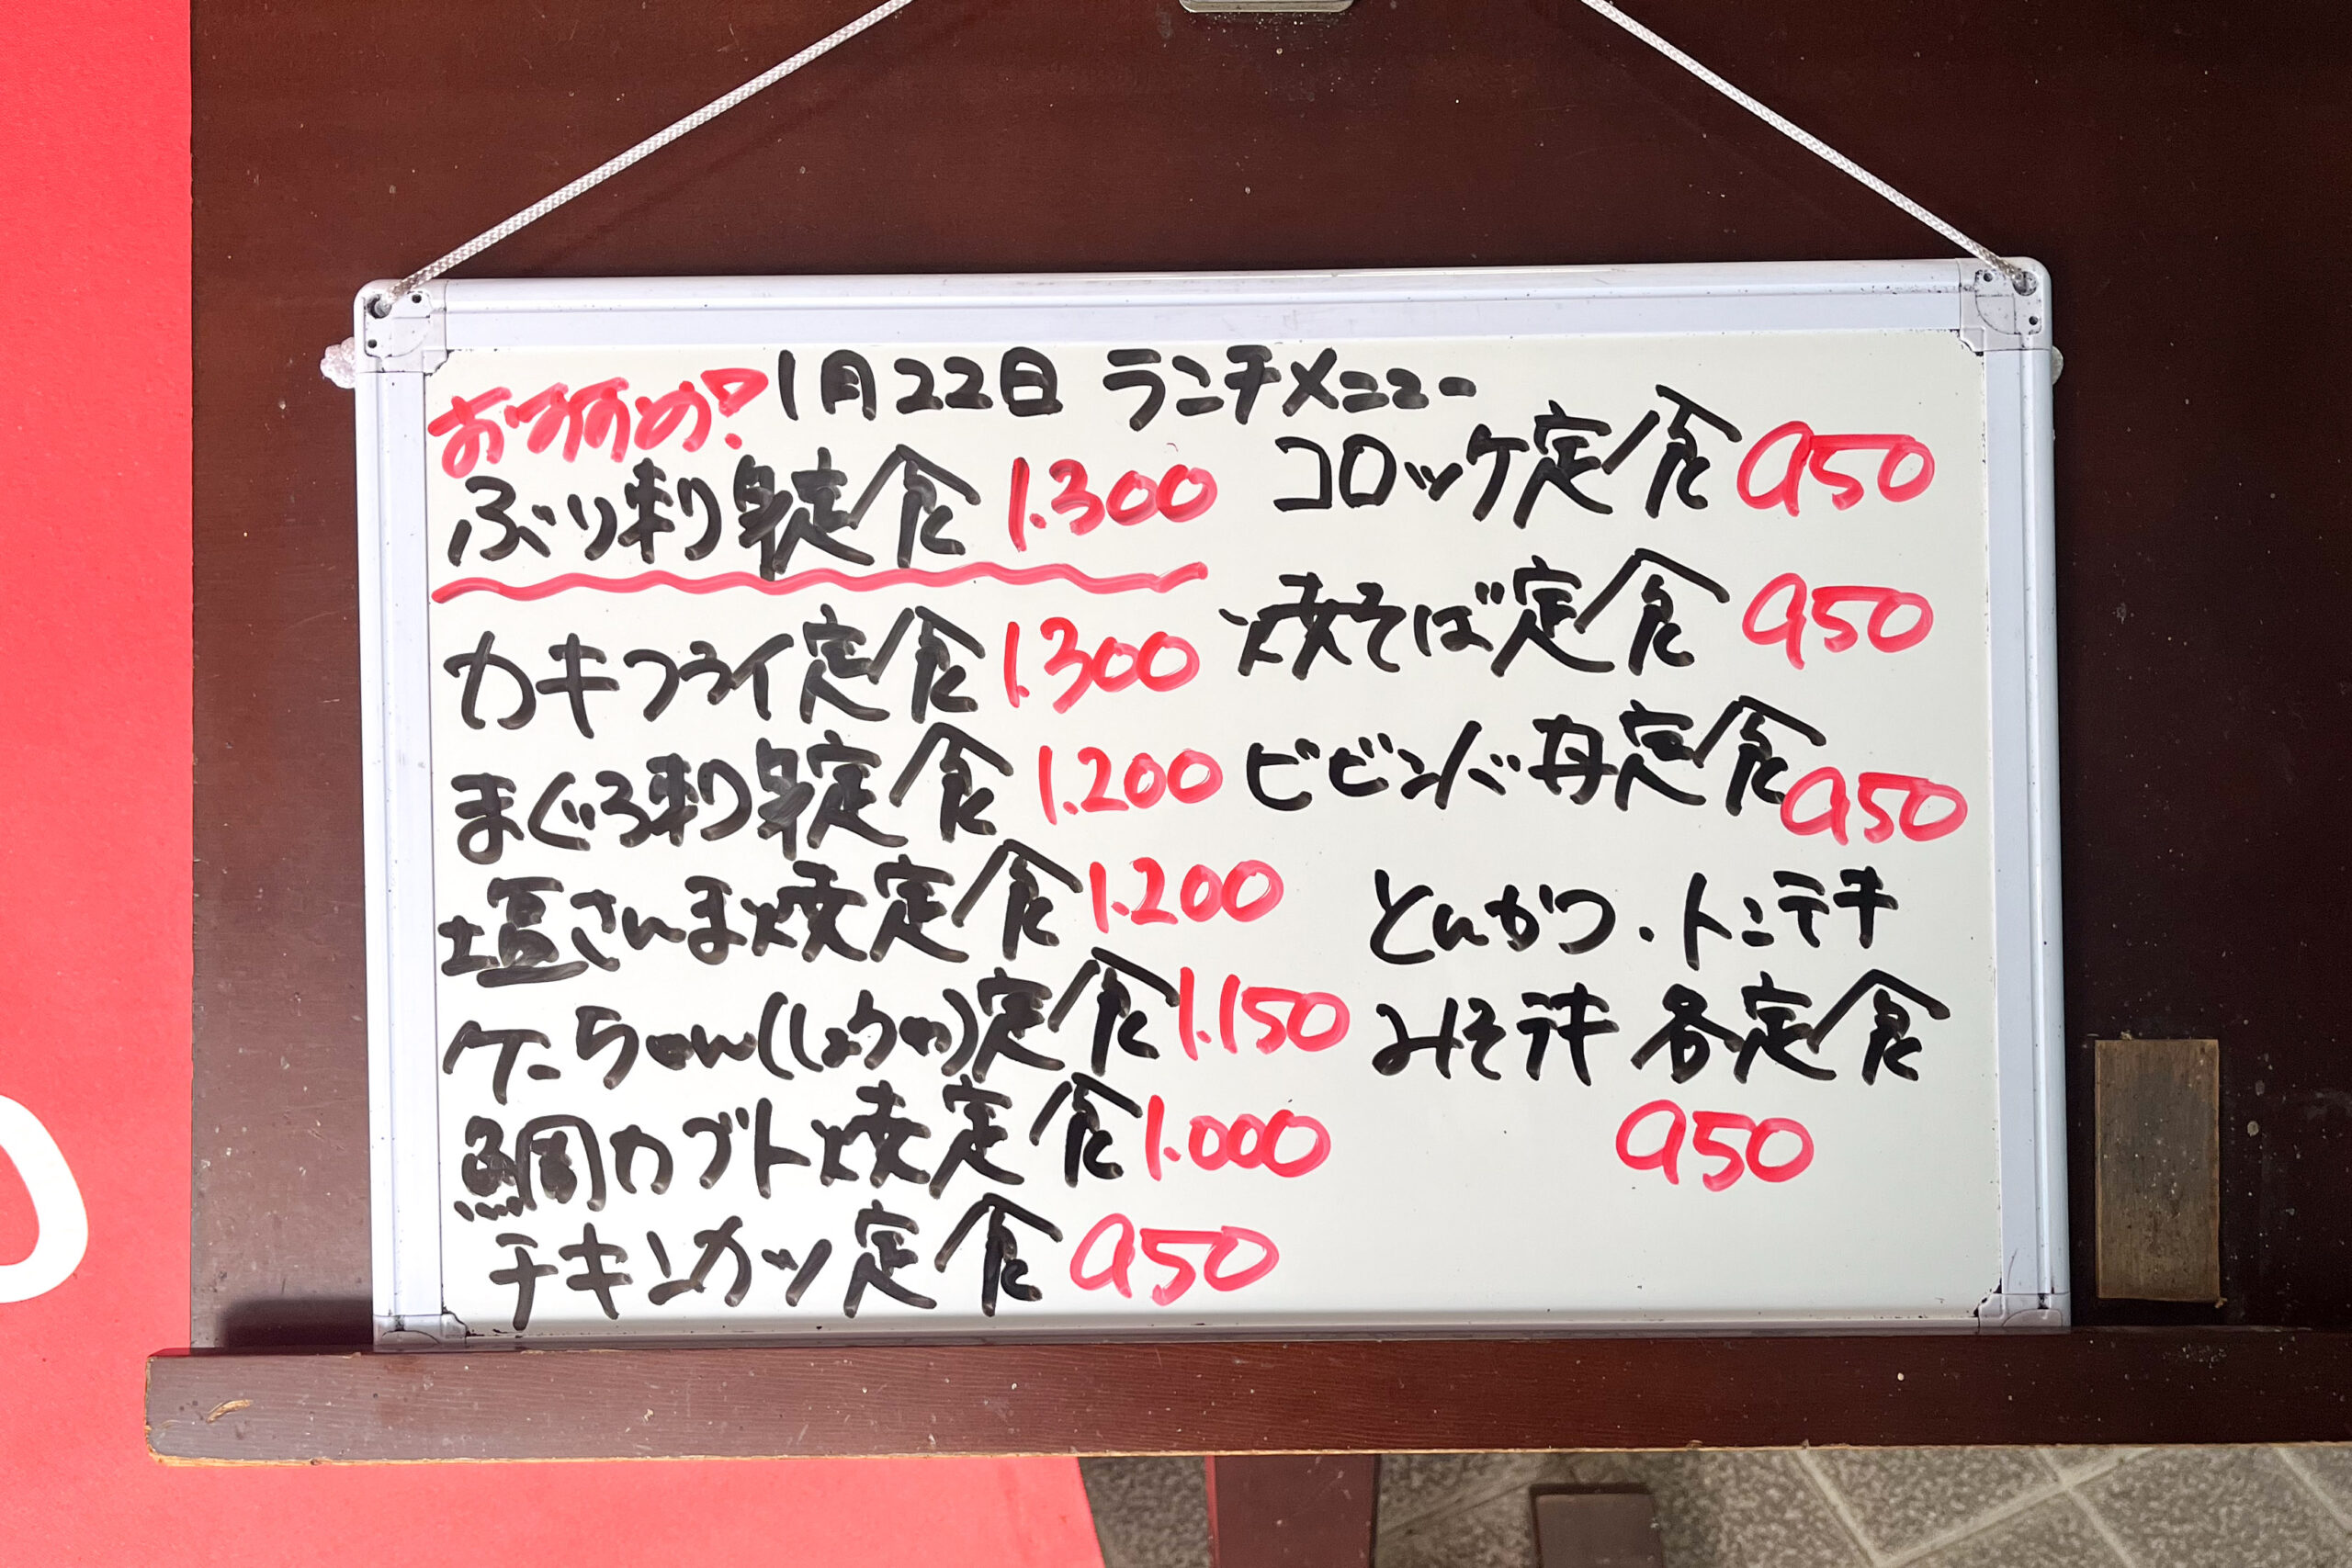 1月22日 ランチメニュー
おすすめ!
ぶり刺身定食 1.300
カキフライ定食 1.300
まぐろ刺身定食 1.200
塩さんま焼定食 1.200
ケーちゃん(しょうゆ)定食 1.150
鯛カブト焼定食 1.000
チキンカツ定食 950
コロッケ定食 950
焼そば定食 950
ビビンバ丼定食 950
とんかつ・トンテキ
みそテキ 各定食
950